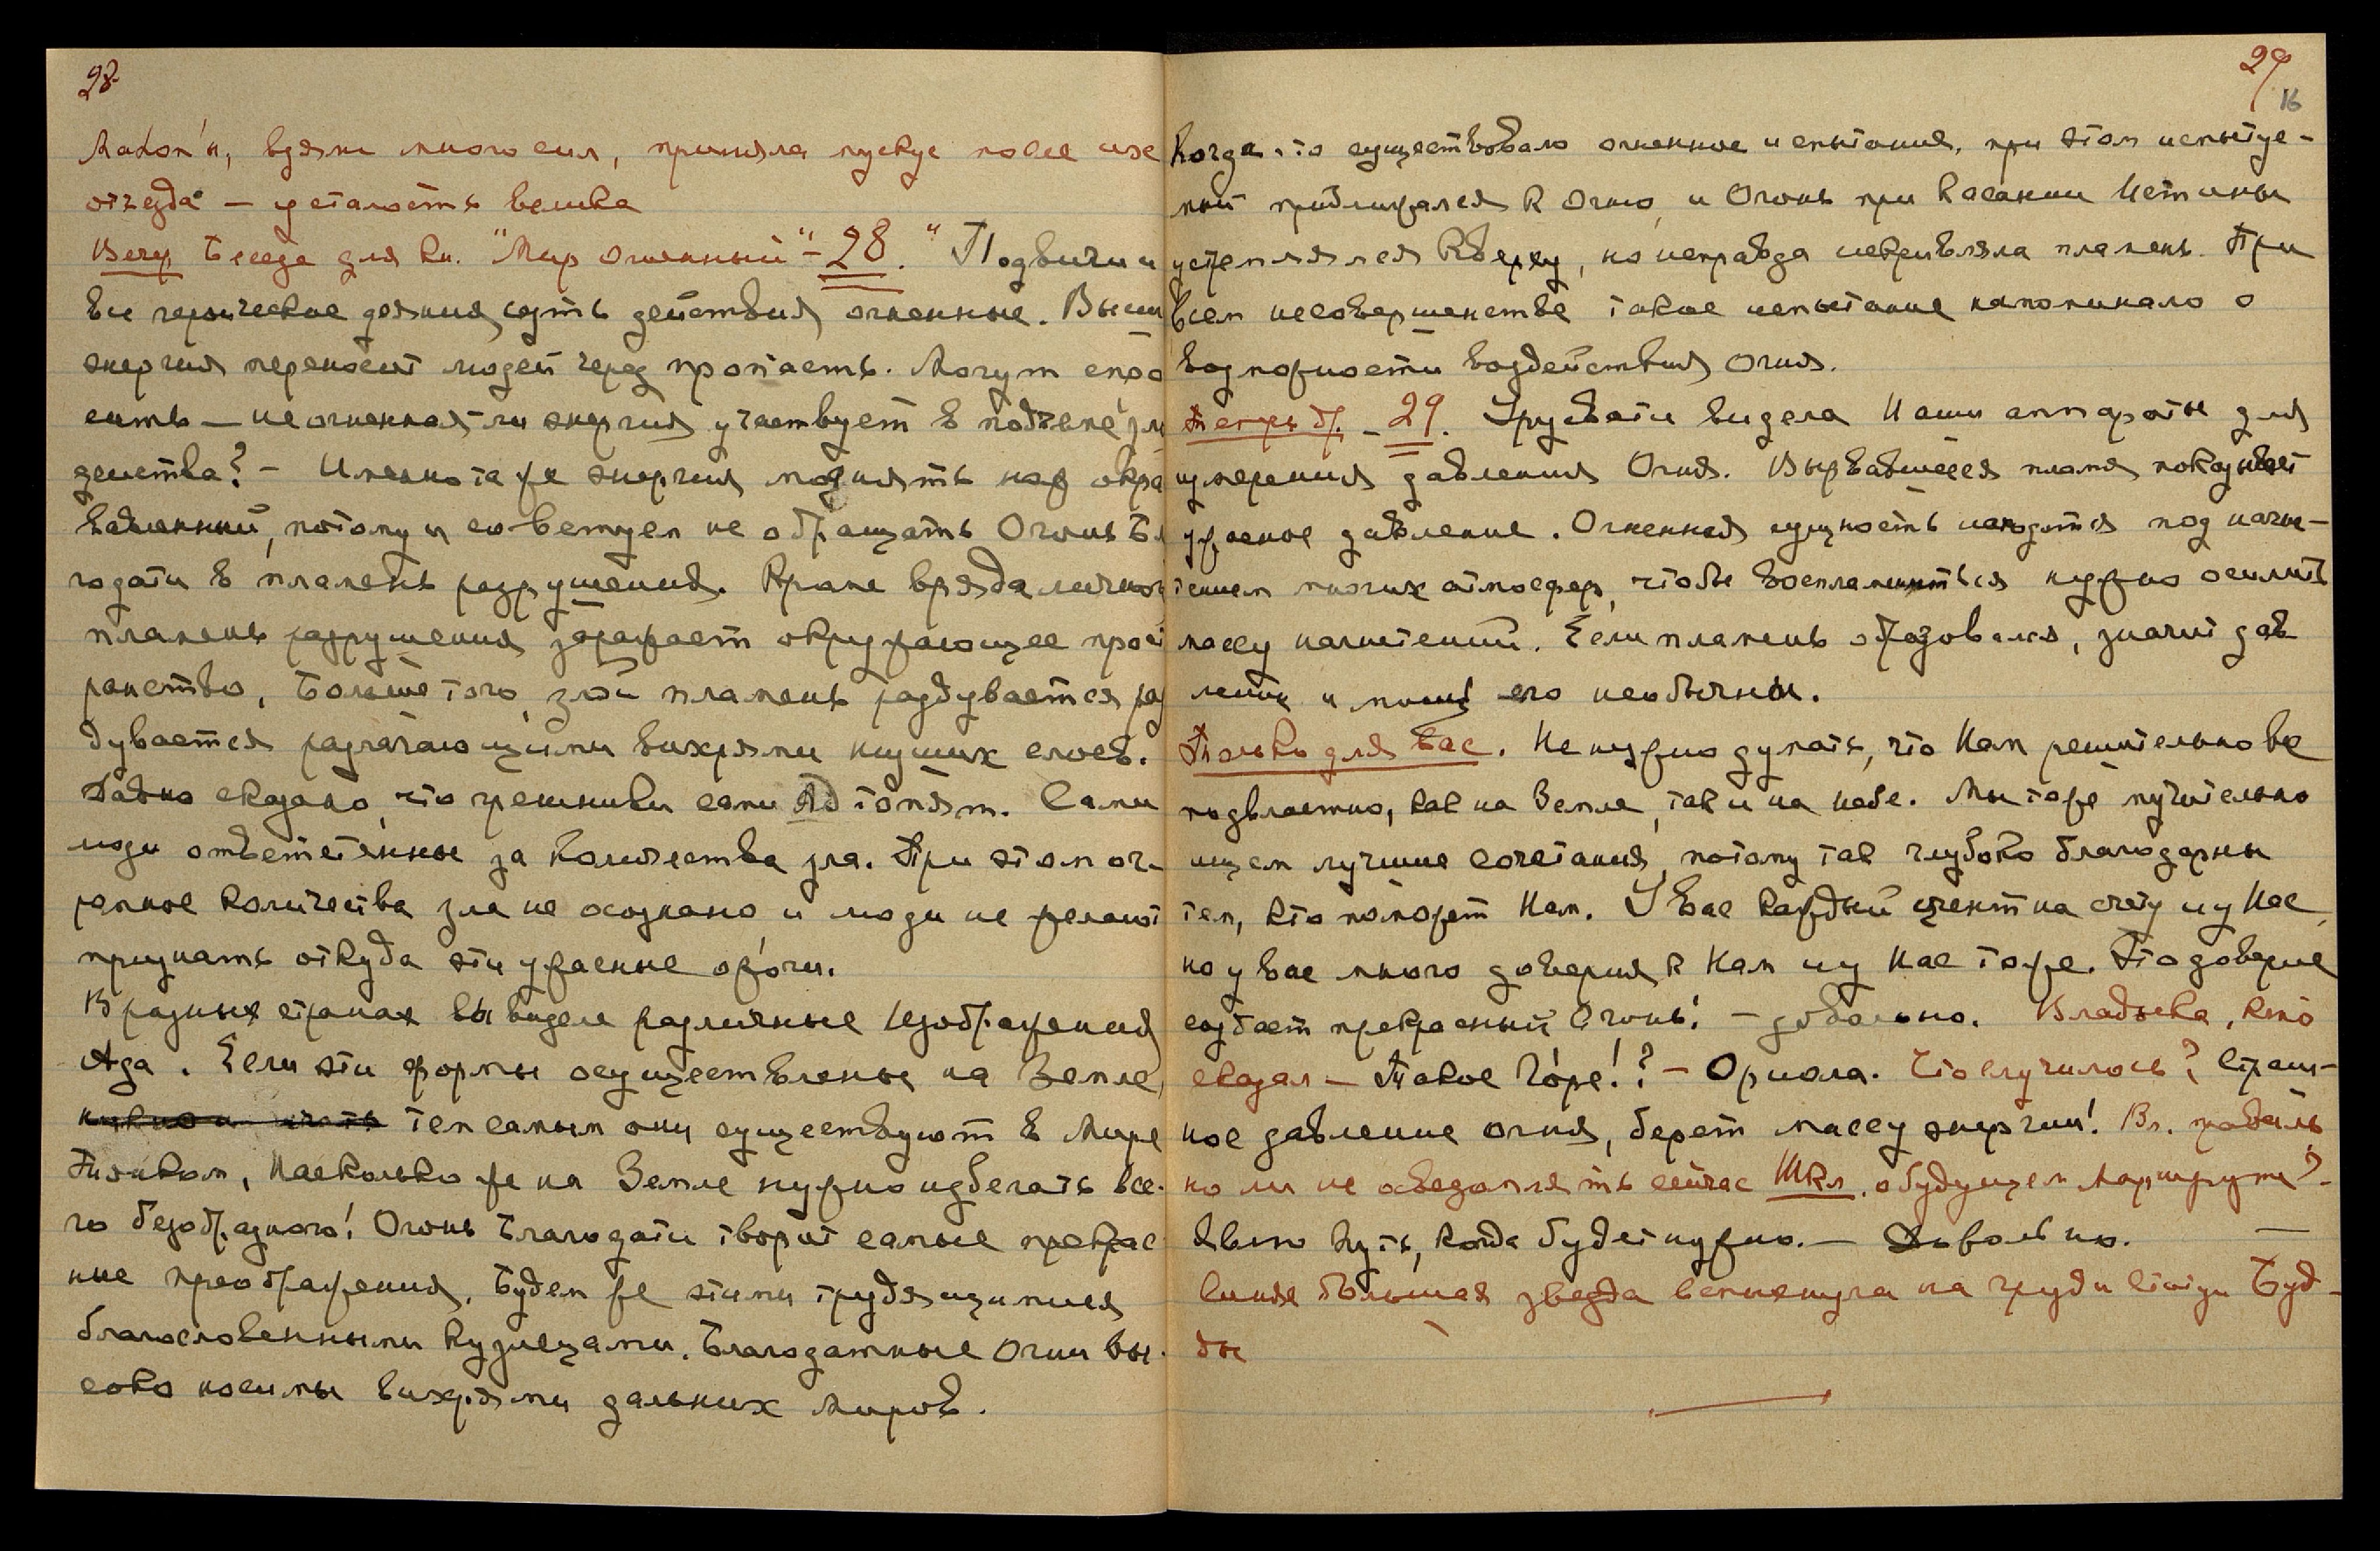 28
Madon'ы, взяли много сил, приняла мускус после их
отъезда — усталость велика
Вечер Беседа для кн. "Мир Огненный" — 28. "Подвиги и
все героические деяния суть действия огненные. Высш
энергия переносит людей через пропасть. Могут спро
сить — не огненная-ли энергия участвует в подъеме зло
действа? — Именно та же энергия может поднять нож окра
вавленный, потому и советуем не обращать Огонь Бл
годати в пламень разрушения. Кроме вреда личного
пламень разрушения заражает окружающее прост
ранство, больше того, злой пламень раздувается раз
дувается разлагающими вихрями низших слоев.
Давно сказано, что грешники сами Ад топят. Сами
люди ответственны за количества зла. При этом ог-
ромное количества зла не осознано, и люди не желают
признать откуда эти ужасные ожоги.
В разных странах вы видели различные Изображения
Ада. Если эти формы осуществлены на Земле,
тем самым они существуют в Мире
Тонком, Насколько же на Земле нужно избегать все-
го безобразного! Огонь Благодати творит самые прекрас
ные преображения. Будем же этими трудящимися
благословенными Кузнецами. Благодатные Огни вы-
соко носимы вихрями дальних миров.
29
16
Когда-то существовало огненное испытание, при этом испытуе-
мый приближался к Огню, и Огонь при касании Истины
устремлялся Кверху, но неправда искривляла пламень. При
всем несовершенстве такое испытание напоминало о
возможности воздействия Огня.
29. Урусвати видела Наши аппараты для
измерения давления Огня. Вырвавшееся пламя показывает
ужасное давление. Огненная сущность находится под нагне-
тением многих атмосфер, чтобы воспламениться нужно осилить
массу нагнетений. Если пламень образовался, значит дав
ление и мощь его необычны.
Только для вас. Не нужно думать, что Нам решительно все
подвластно, как на Земле, так и на небе. Мы тоже мучительно
ищем лучшие сочетания, потому так глубоко благодарны
тем, кто поможет Нам. У вас каждый цент на счету и у Нас,
но у вас много доверия к Нам и у Нас тоже. Это доверие
создает прекрасный Огонь! — довольно. Владыка, Кто
сказал — Такое Горе!? — Ориола. Что случилось? Страш-
ное давление огня, берет массу энергии! Вл. правиль
но ли не осведомлять сейчас Шкл. о будущем Маршруте?-
Явлю Путь, когда будет нужно. — Довольно. —
Синяя большая звезда вспыхнула на груди статуи Буд-
ды